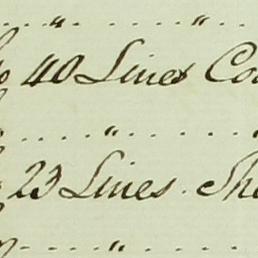 .... " ........ " ....
40 Lines Co
.... " ........ "
23 Lines. The
.... " ....